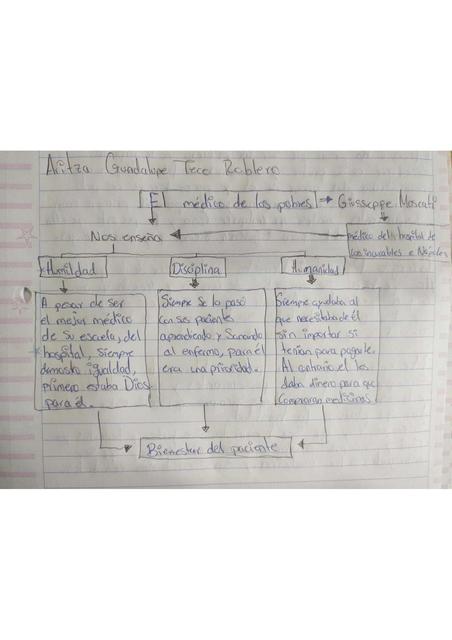 Aritza Guadalupe Teco Roblero
El médico de los pobres → Giusseppe Moscati
Nos enseña
médico del hospital de
los incurables e Nápoles
Humildad
Disciplina
Humanidad
A pesar de ser
el mejor médico
de su escuela, del
hospital, siempre
demostro igualdad,
primero estaba Dios
para él.
Siempre se la pasó
con ses pacientes
aprendiendo y Sanando
al enfermo, para él
era una prioridad.
Siempre ayudaba al
que necesitaba de él
sin importar si
tenían para pagarle.
Al contrario el les
daba dinero para que
compraran medicinas
Bienestar del paciente